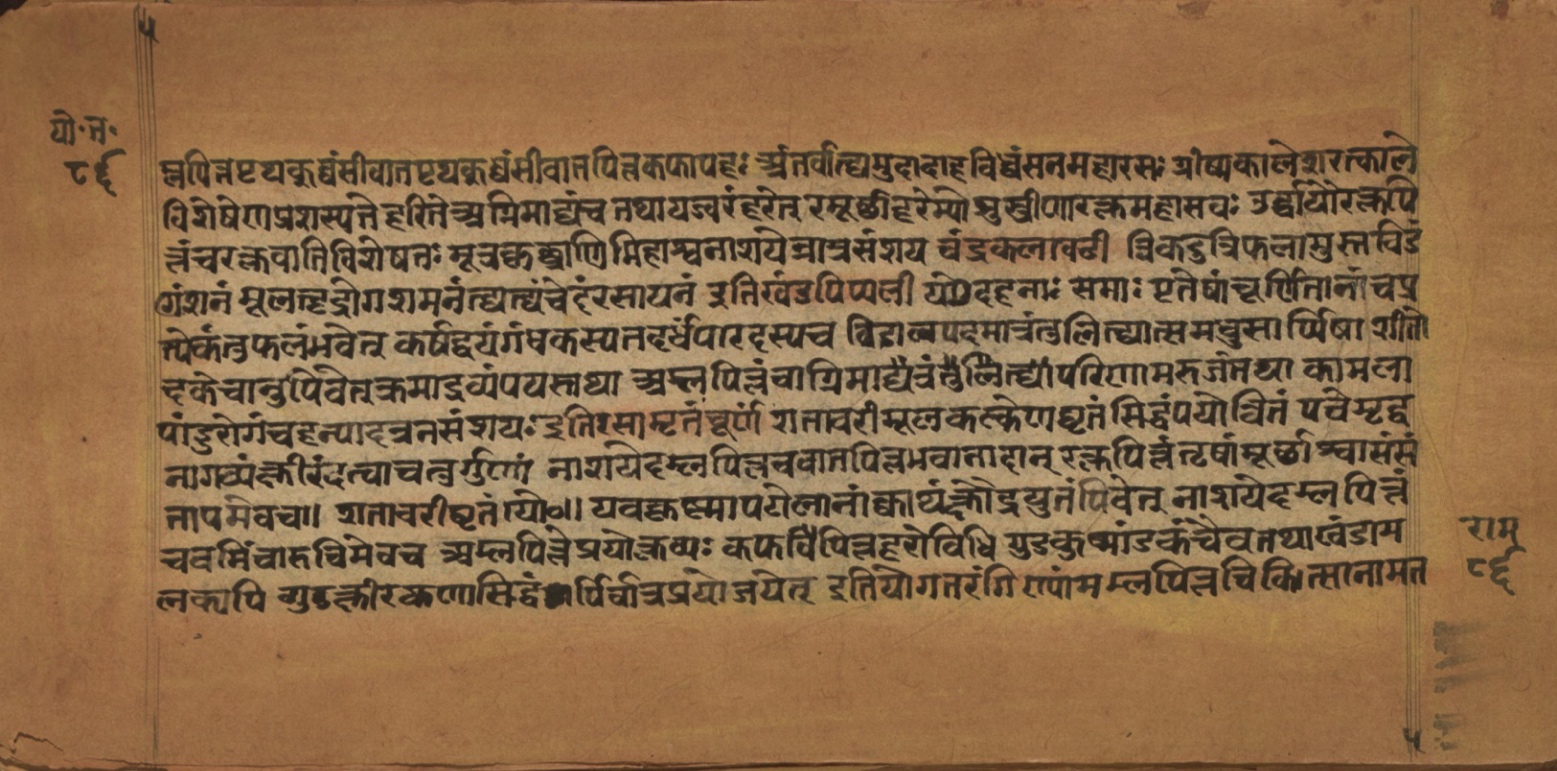 ५
यो॰त॰
८६
म्लपित्तप्टथकुध्वंसीवातप्टथकुध्वंसीवातपित्तकफापहः अंतर्वात्द्यमुदादाहविध्वंसनमहारसः ग्रीष्मकालेशरत्काले
विशेषेणप्रशस्पते हरिते अग्निमाद्यंच तथायज्वरंहरेत् रमूर्छीहरेम्पो सुस्त्रीणारक्तमहासवः उर्द्ध्वाधोरक्तपि
त्तंचरक्तवातिविशेषतः मूत्रकृछ्राणि मिहाश्वनाशयेन्नात्रसंशय चंद्रकलावटी त्रिकटुत्रिफलामुस्तविडं
गंशनं मूलत्दृद्रोगशमनंत्द्यत्यंचेदंरसायनं इतिखंडपिप्पली दहनाः समाः एतेषांचूर्णितानांचप्र
त्येकंतुफलंभवेत् कर्षद्वयंगंधकस्पतदर्धंपारदस्पच विडालपदमात्रंतुलित्द्यात्समधुसार्प्पिषा शीतो
दकंचानुपिवेत्क्रमाद्रव्यंपयस्तथा अम्लपित्तंचाग्निमाद्यं परिणामरुजंतथा कामला
पांडुरोगंचहन्यादत्रनसंशयः इतिरसामृतंचूर्णं शतावरीमूलकल्केणघृतंसिद्धंपयोन्वितं पचेमृद्व
नागव्यंक्षीरंदत्वाचतुर्गुणं नाशयेदम्लपित्तचवातपित्तभवान्गदान् रक्तपित्तंतृषांमूर्छाश्वासंसं
तापमेवच॥ शतावरीघृतं यवकृष्मापटोलानांक्वाथंक्षौद्रयुतंपिवेत् नाशयेदम्लपित्तं
चवमिंचारुचिमेवच अम्लपित्ते प्रयोक्तव्यः कफपित्तहरोविधि गुडकुष्मांडकंचैवतथाखंडाम
लक्यपि गुडक्षीरकणासिद्धं र्पिर्वात्रप्रयोजयेत् इतियोगतरंगिण्पांमम्लपित्तचिकित्सानामत
राम
८६
५